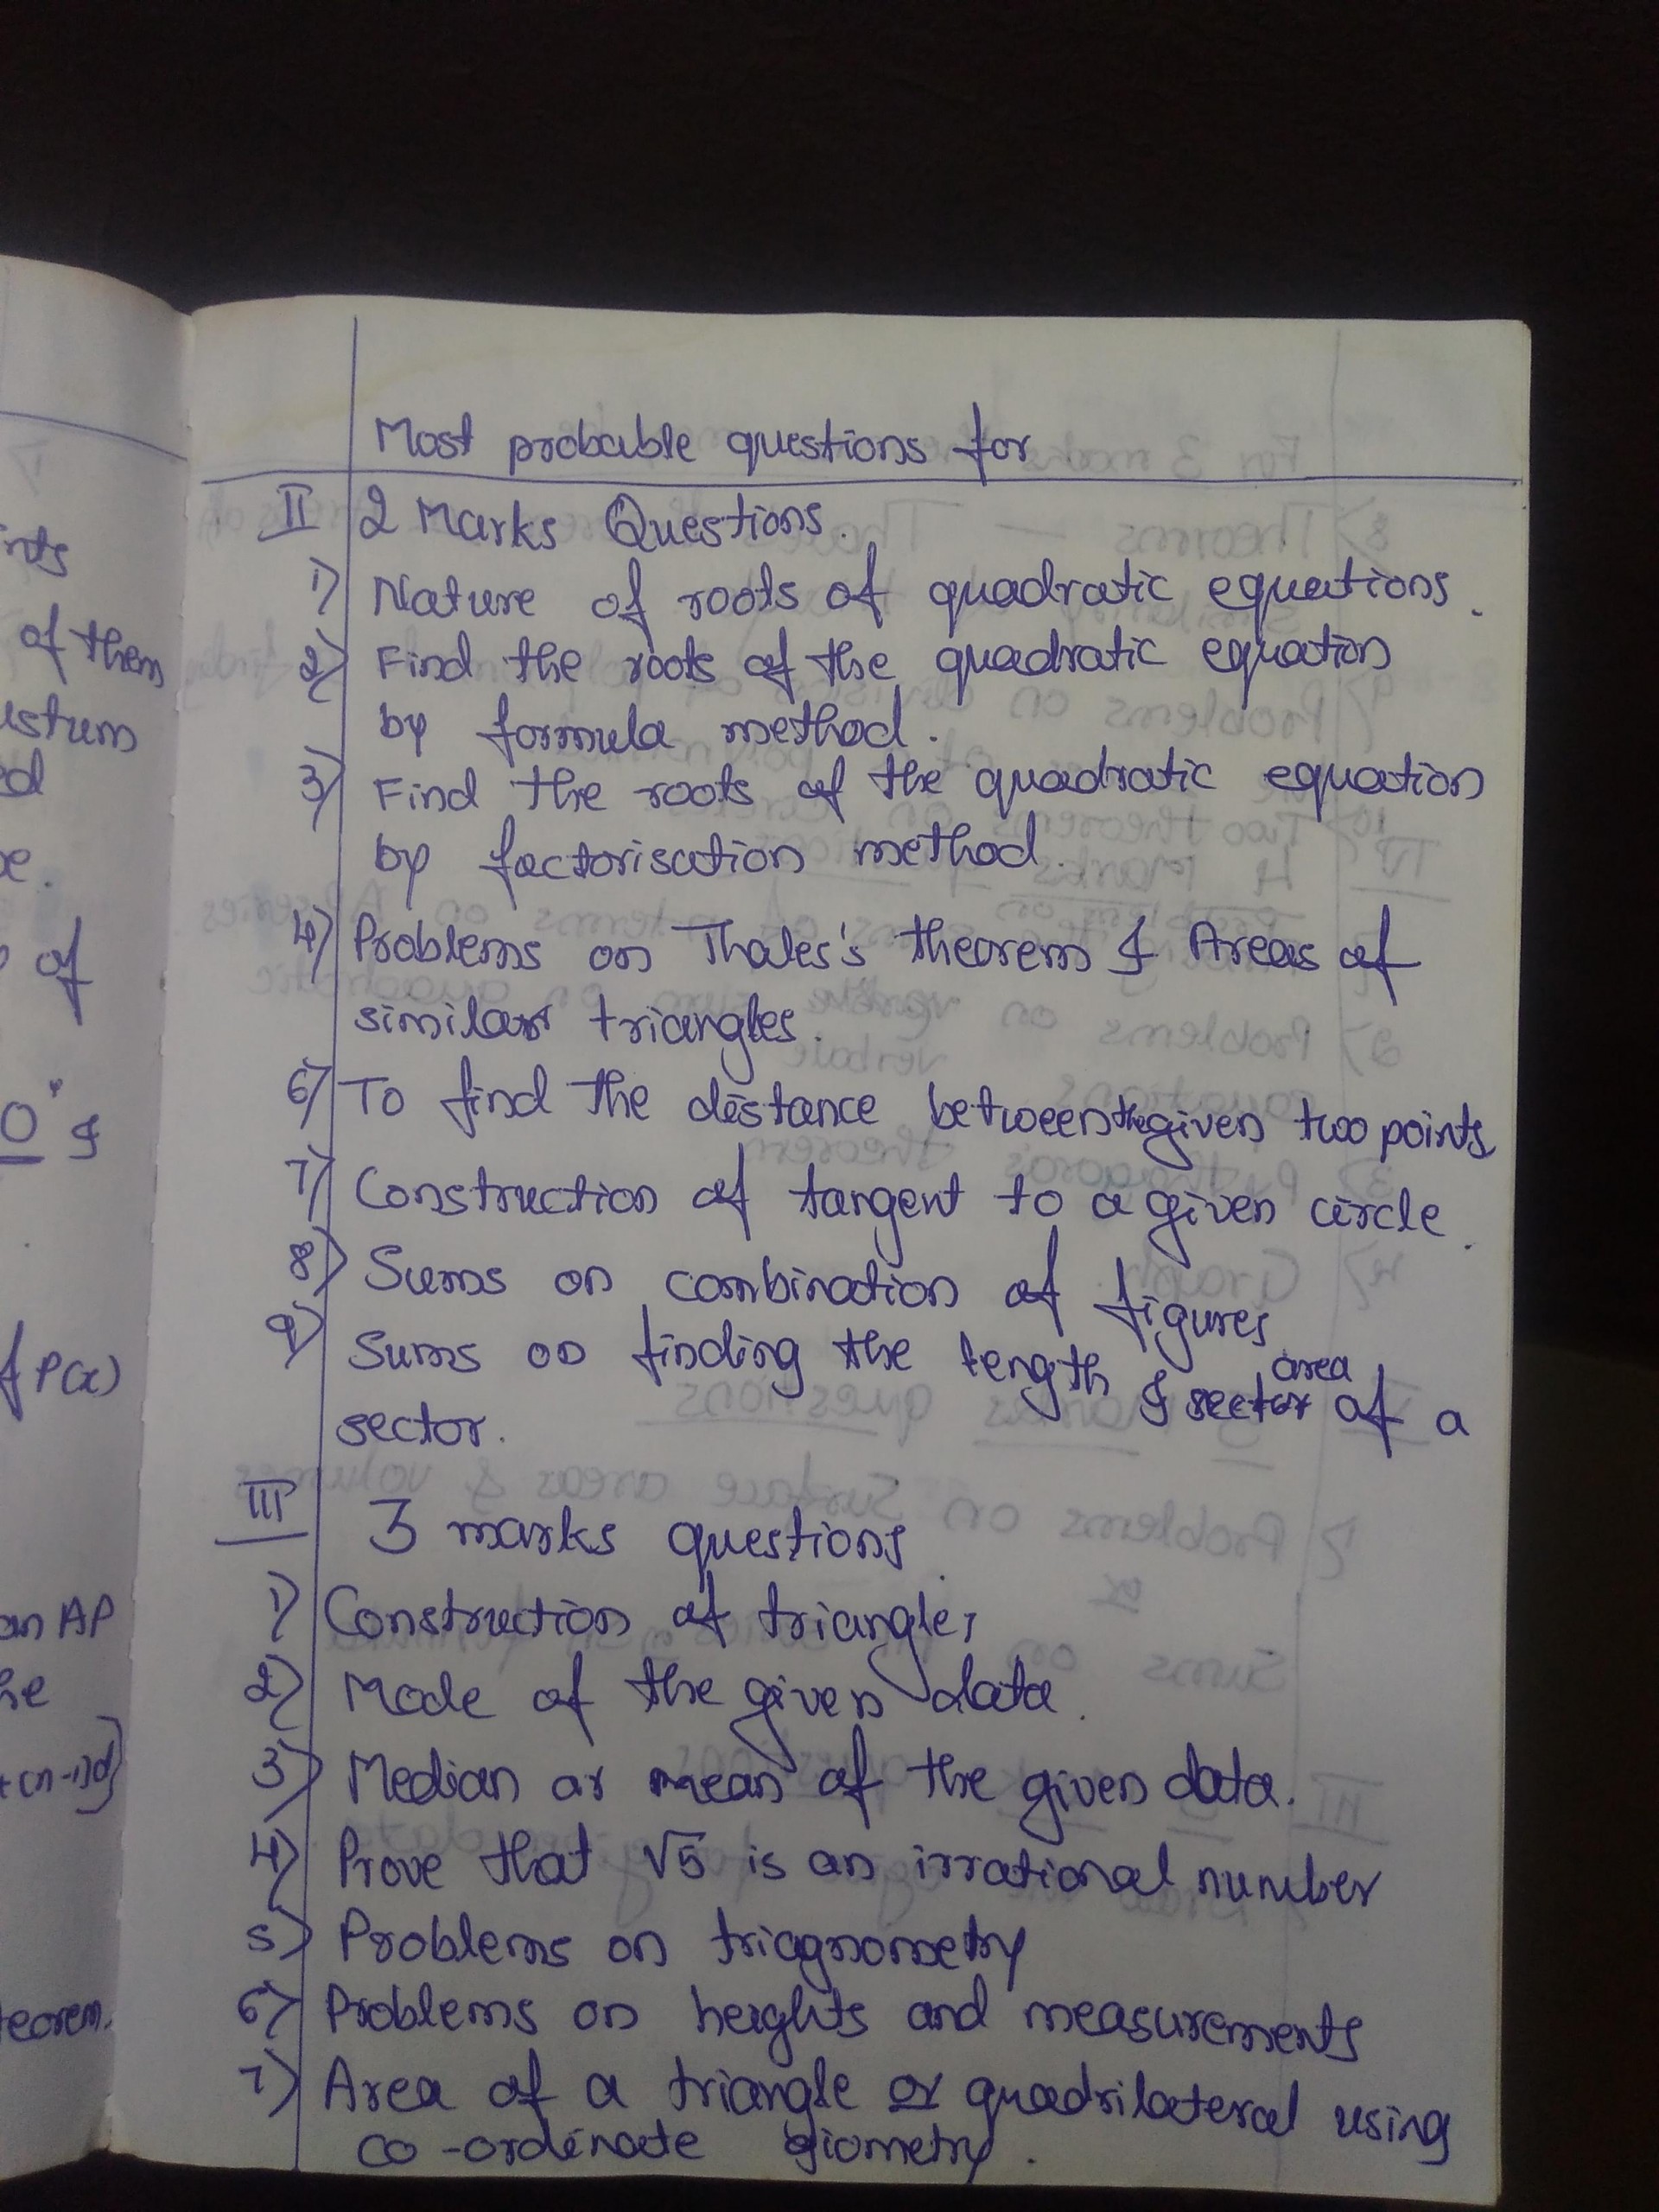 Most probable questions for
II 2 Marks Questions.
1) Nature of roots of quadratic equations.
2) Find the roots of the quadratic equation
by formula method.
3) Find the roots of the quadratic equation
by factorisation method.
4) Problems on Thales's theorem & Areas of
similar triangles.
6) To find the distance between the given two points
7) Construction of tangent to a given circle.
8) Sums on combination of figures
9) Sums on finding the length & area of a
sector.
III 3 marks questions
1) Construction of triangles
2) Mode of the given data.
3) Median or mean of the given data.
4) Prove that √5 is an irrational number
5) Problems on triagnometry
6) Problems on heights and measurements
7) Area of a triangle or quadrilateral using
co-ordinate giometry.
nts
of them
ustum
ed
e.
of
0" &
f P(x)
an AP
he
+(n-1)d]
eorem.